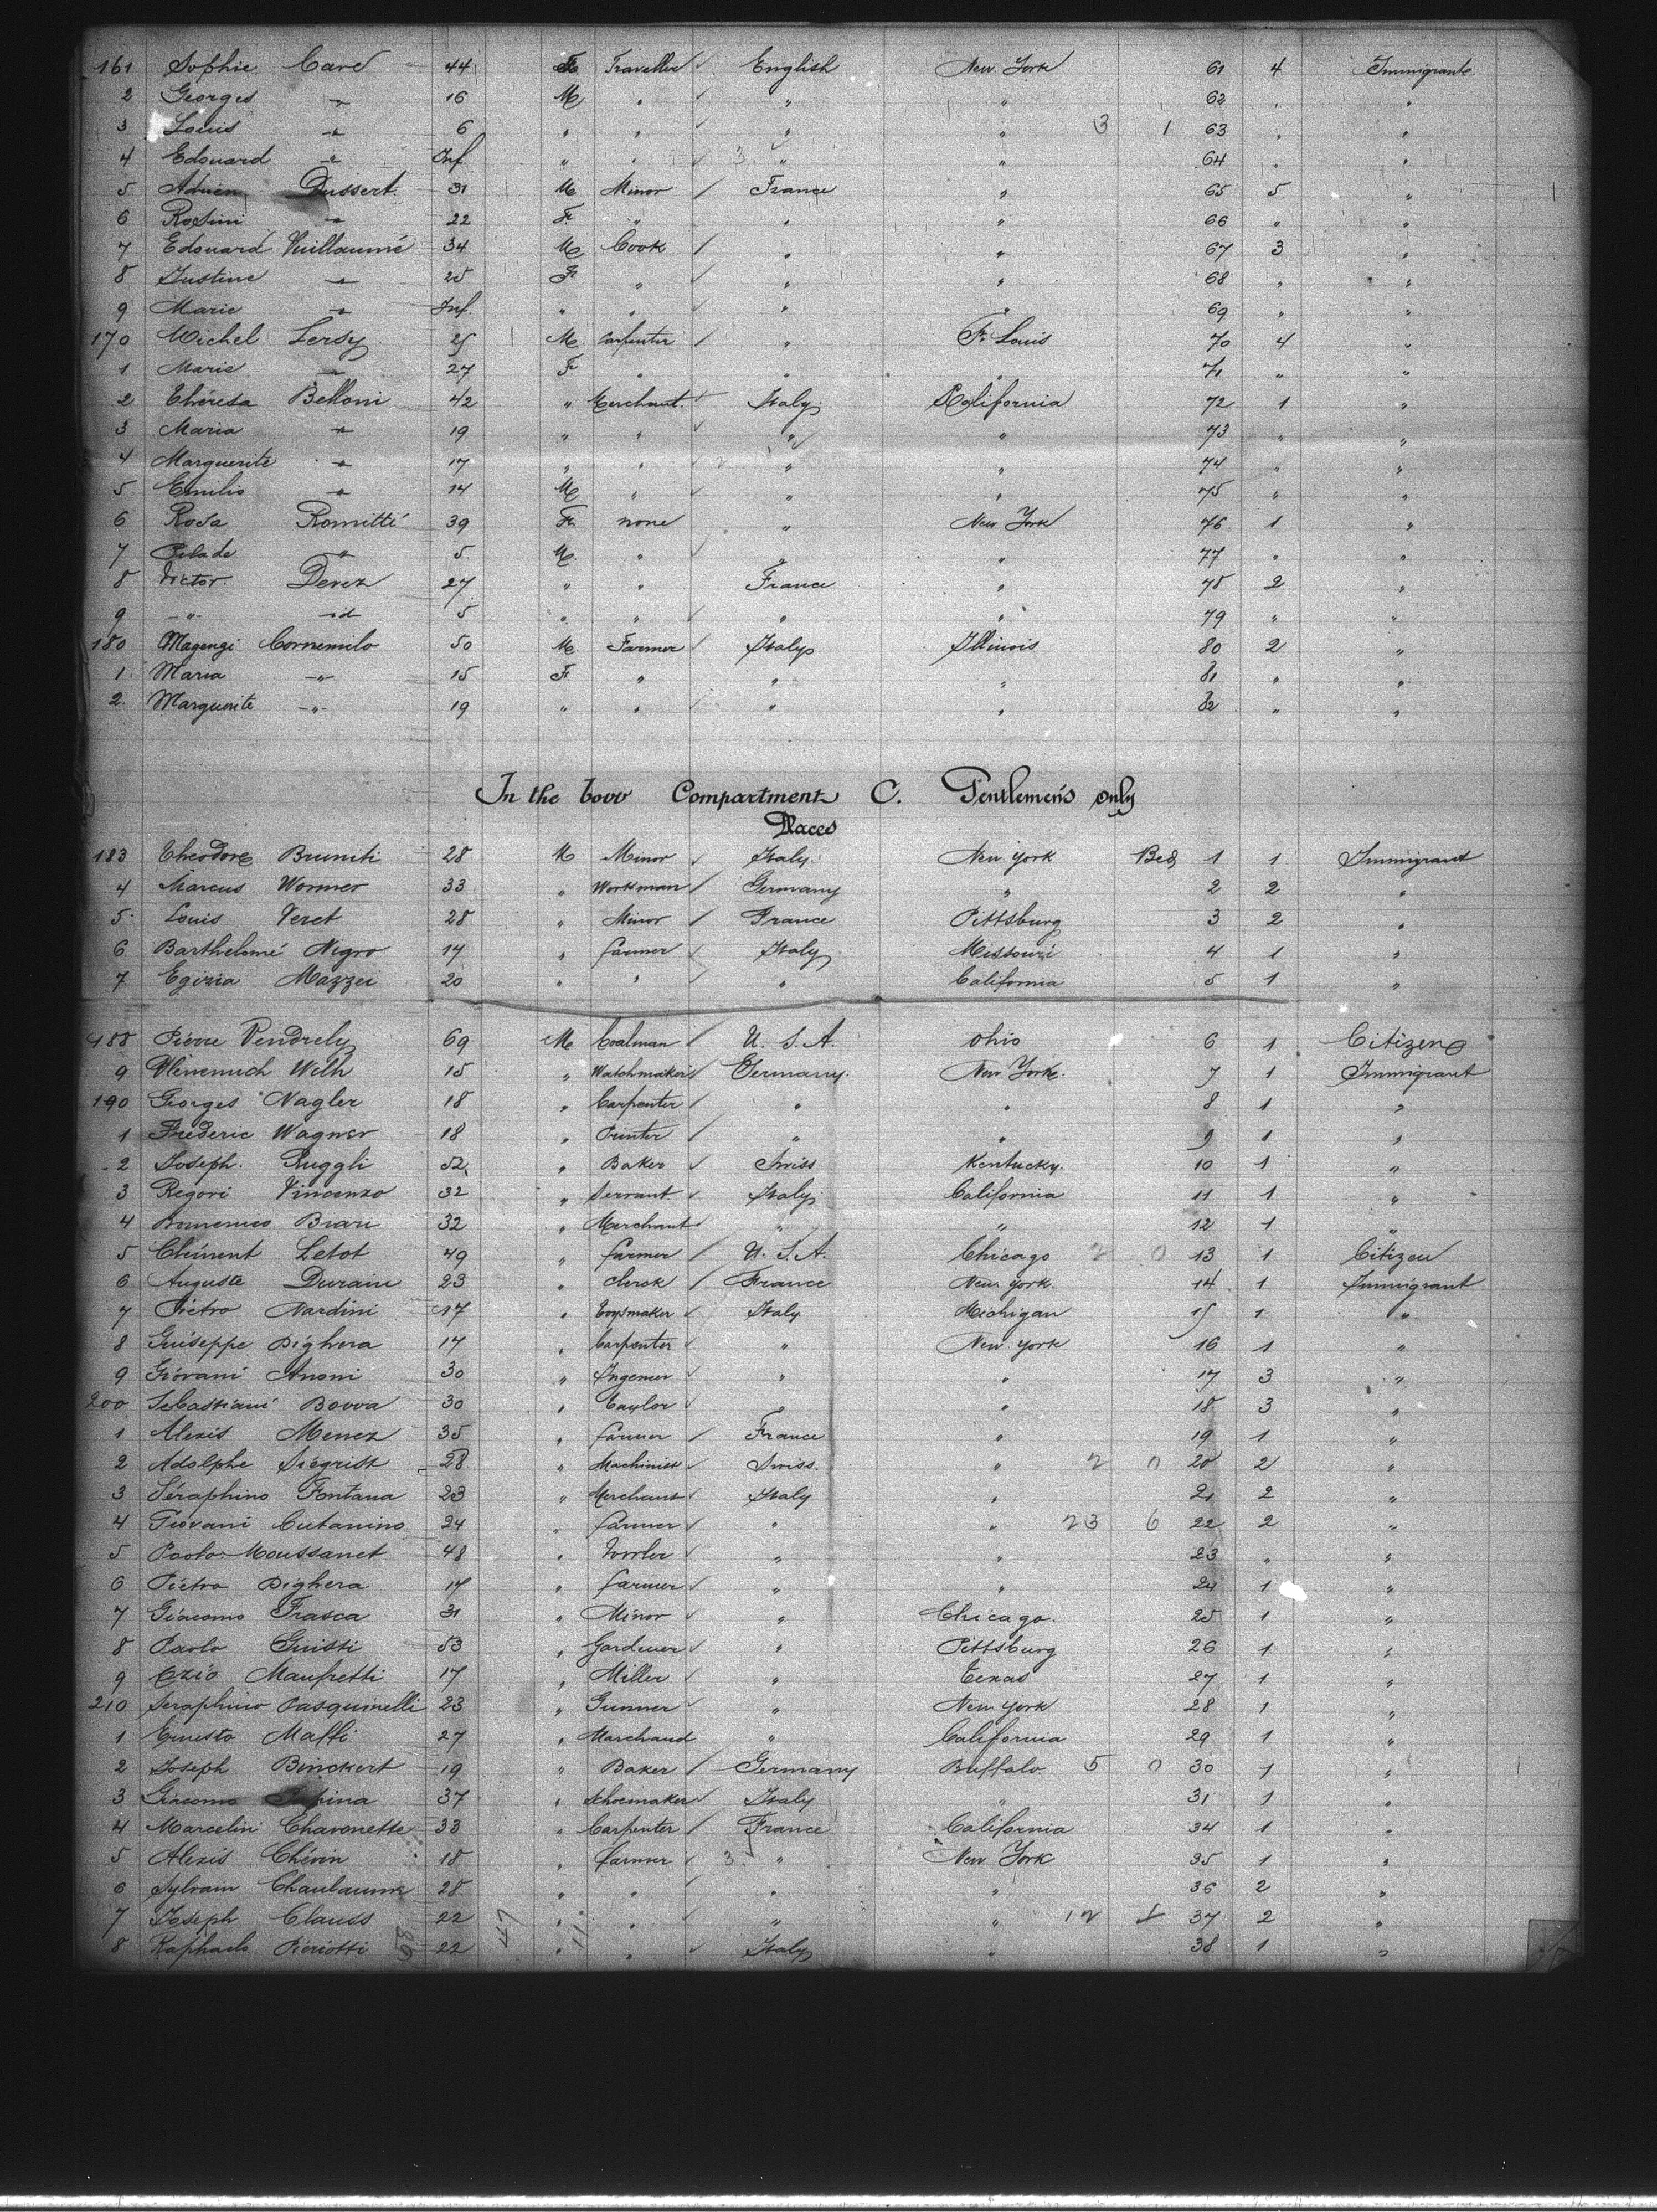 161 Sophie Care 44 F Traveller English New York 61 4 Immigrante
2 Georges " 16 M " " " 62 " "
3 Louis " 6 " " " " 3 1 63 " "
4 Edouard " Inf. " " 3 " " 64 " "
5 Adrien Dussert 31 M Minor France " 65 5 "
6 Rosini " 22 F. " " " 66 " "
7 Edouard Vuillaumé 34 M Cook " " 67 3 "
8 Justine " 25 F " " " 68 " "
9 Marie " Inf. " " " " 69 " "
170 Michel Lersy 25 M Carpenter " St Louis 70 4 "
1 Marie " 27 F. " " " 71 " "
2 Théresa Belloni 42 " Merchant. Italy California 72 1 "
3 Maria " 19 " " " " 73 " "
4 Marguerite " 17 " " " " 74 " "
5 Emilio " 14 M " " " 75 " "
6 Rosa Romitti 39 F. none " New York 76 1 "
7 Pilade " 5 M. " " " 77 " "
8 Victor Derez 27 " " France " 78 2 "
9 " id 5 " " " " 79 " "
180 Magengi Cornemilo 50 M Farmer Italy Illinois 80 2 "
1 Maria " 15 F. " " " 81 " "
2 Marguerite " 19 " " " " 82 " "
In the Compartment C. Gentlemen's only
Places
183 Theodore Bruniti 28 M Minor Italy New York Bed 1 1 Immigrant
4 Marcus Wormer 33 " Workman Germany " 2 2 "
5 Louis Veret 28 " Minor France Pittsburg 3 2 "
6 Barthelomé Nigro 17 " farmer Italy Missouri 4 1 "
7 Egizia Mazzei 20 " " " California 5 1 "
188 Pierre Vendrely 69 M Coalman U. S. A. Ohio 6 1 Citizen
9 Wilh 15 " Watchmaker Germany New York. 7 1 Immigrant
190 Georges Nagler 18 " Carpenter " " 8 1 "
1 Frederic Wagner 18 " Printer " " 9 1 "
2 Joseph Ruggli 52 " Baker Swiss Kentucky 10 1 "
3 Regori Vincenzo 32 " Servant Italy California 11 1 "
4 Domenico Biari 32 " Merchant " " 12 1 "
5 Clément Letot 49 " farmer U. S. A. Chicago 2 0 13 1 Citizen
6 Auguste Durain 23 " Clerck France New York. 14 1 Immigrant
7 Pietro Nardini 17 " Toysmaker Italy Michigan 15 1 "
8 Guiseppe Dighera 17 " Carpenter " New York 16 1 "
9 Giovani Anoni 30 " Ingenieur " " 17 3 "
200 Sebastiani Bovva 30 " Taylor " " 18 3 "
1 Alexis Menez 35 " farmer France " 19 1 "
2 Adolphe Siegrist 28 " Machinist Swiss. " 2 0 20 2 "
3 Séraphino Fontana 23 " Merchant Italy " 21 2 "
4 Giovani Cutanino 24 " farmer " " 23 6 22 2 "
5 Paolo Moussanet 48 " " " 23 " "
6 Pietro Dighera 17 " farmer " " 24 1 "
7 Giacomo Frasca 31 " Minor " Chicago. 25 1 "
8 Paolo Guisti 53 " Gardener " Pittsburg 26 1 "
9 Ezio Maufretti 17 " Miller " Texas 27 1 "
210 Seraphino Pasquinelli 23 " Gunner " New York 28 1 "
1 Ernesto Maffi 27 " Marchand " California 29 1 "
2 Joseph Binckert 19 " Baker Germany Buffalo 5 0 30 1 "
3 Giacomo 37 " Schoemaker Italy " 31 1 "
4 Marcelin Chavonette 33 " Carpenter France California 34 1 "
5 Alexis Chévin 18 " farmer 3 " New York 35 1 "
6 Sylvain Chaulaume 28 " " " " 36 2 "
7 Joseph Clauss 22 " " " " 12 37 2 "
8 Raphaelo Pieriotti 22 " " Italy " 38 1 "